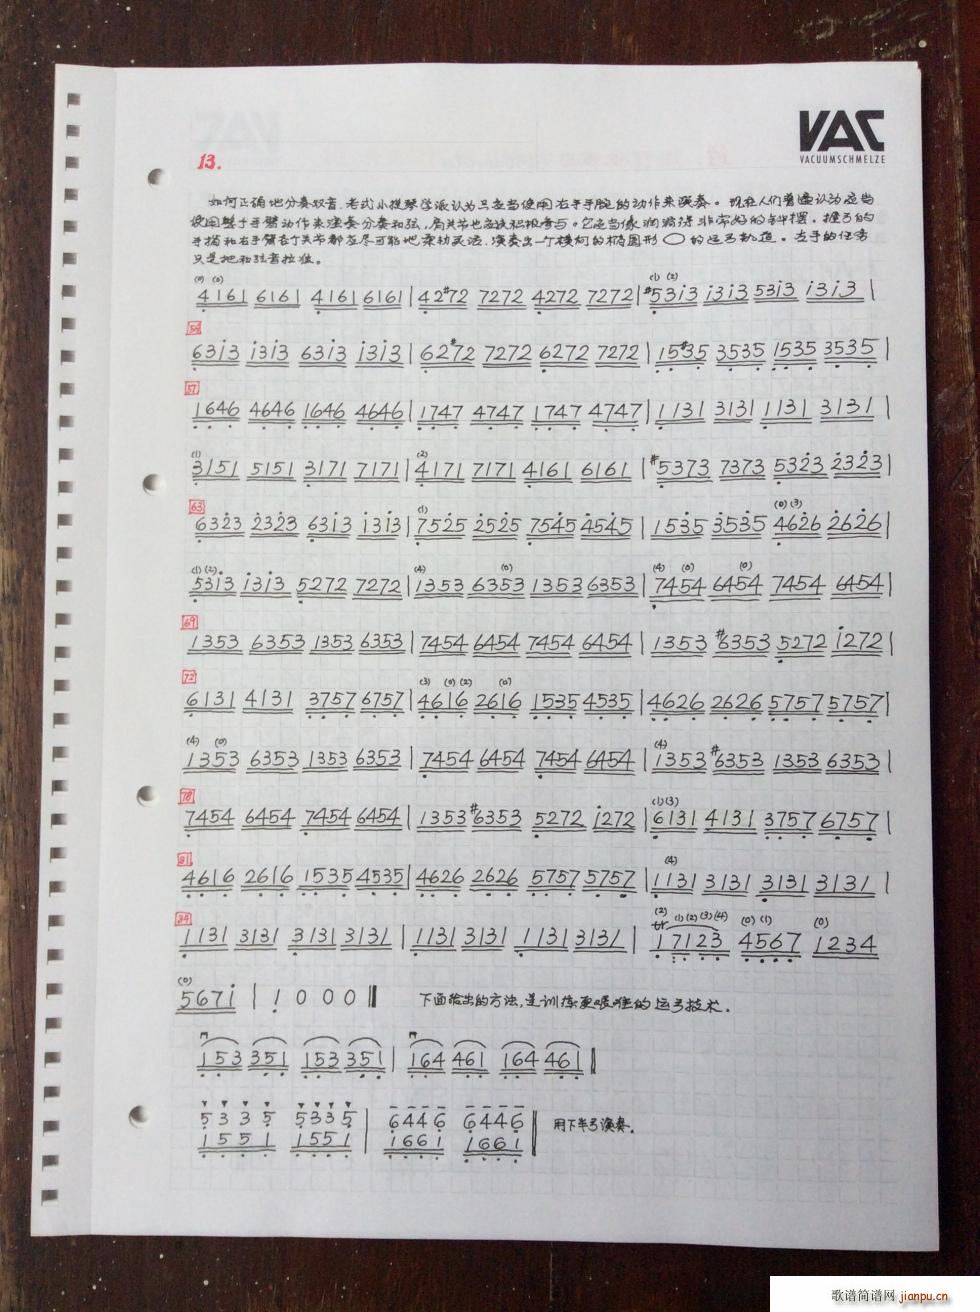 VAC
VACUUMSCHMELZE
13.
如何正确地分奏双音，老式小提琴学派认为只应当使用右手手腕的动作来演奏。现在人们普遍认为应当
使用整个手臂动作来演奏分奏和弦，肩关节也应该积极参与。它应当像润滑得非常好的钟摆，握弓的
手指和右手臂各个关节都应尽可能地柔软灵活，演奏出一个横向的椭圆形 的运弓轨道。左手的任务
只是把和弦音拉准。
(0) (0) (1) (2)
4161 6161 4161 6161 | 42#72 7272 4272 7272 | #53i3 i3i3 53i3 i3i3 |
54
63i3 i3i3 63i3 i3i3 | 62#72 7272 6272 7272 | 15#35 3535 1535 3535 |
57
1646 4646 1646 4646 | 1747 4747 1747 4747 | 1131 3131 1131 3131 |
(1) (2)
3151 5151 3171 7171 | 4171 7171 4161 6161 | #5373 7373 5323 2323 |
63 (1) (0) (3)
6323 2323 63i3 i3i3 | 7525 2525 7545 4545 | 1535 3535 4626 2626 |
(1) (2) (4) (0) (4) (0) (0)
53i3 i3i3 5272 7272 | 1353 6353 1353 6353 | 7454 6454 7454 6454 |
69
1353 6353 1353 6353 | 7454 6454 7454 6454 | 1353 #6353 5272 i272 |
72 (3) (0) (2) (0)
6131 4131 3757 6757 | 4616 2616 1535 4535 | 4626 2626 5757 5757 |
(4) (0) (4)
1353 6353 1353 6353 | 7454 6454 7454 6454 | 1353 #6353 1353 6353 |
78 (1) (3)
7454 6454 7454 6454 | 1353 #6353 5272 i272 | 6131 4131 3757 6757 |
81 (4)
4616 2616 1535 4535 | 4626 2626 5757 5757 | 1131 3131 3131 3131 |
84 (2) tr (1) (2) (3) (4) (0) (1) (0)
1131 3131 3131 3131 | 1131 3131 1131 3131 | 17123 4567 1234
(0)
567i | 1 0 0 0 ‖ 下面给出的方法，是训练更艰难的运弓技术。
153 351 153 351 | 164 461 164 461 ‖
5 3 3 5 5 3 3 5 | 6 4 4 6 6 4 4 6 ‖ 用下半弓演奏。
1 5 5 1 1 5 5 1 | 1 6 6 1 1 6 6 1
歌谱简谱网 jianpu.cn